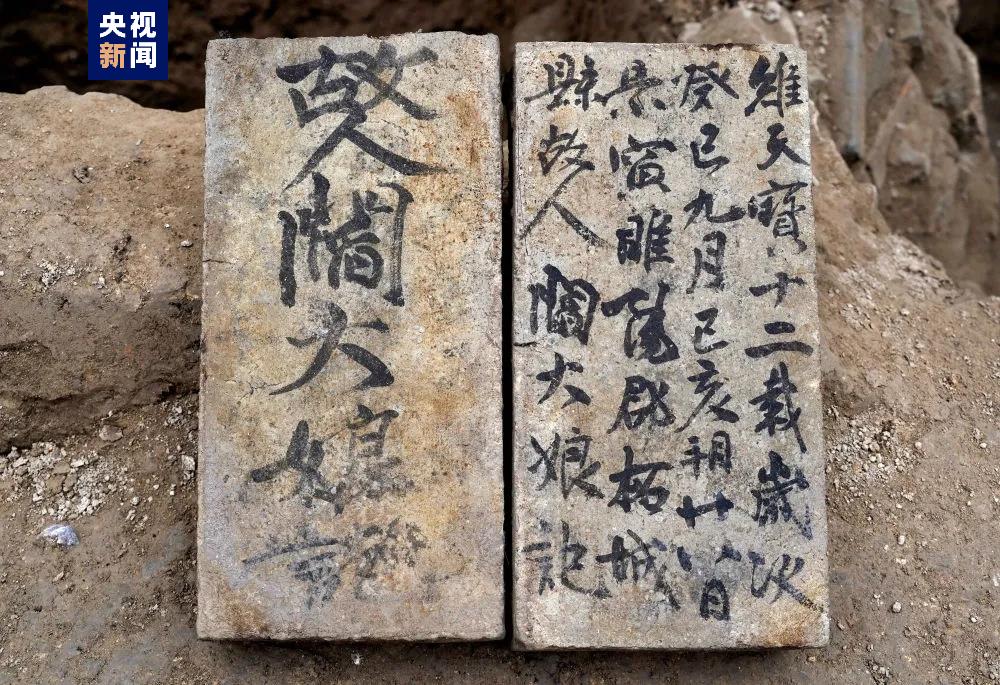 央视
新闻
故人閻大娘
維天寶十二載歲次
癸巳九月己亥朔廿八日
景寅睢陽郡柘城
縣故人閻大娘記